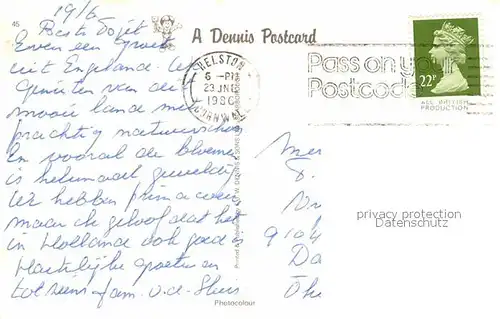 19/6
45
Beste Dojet
A Dennis Postcard
Even een groet
uit Engeland. We
genieten van dit
mooie land met
prachtig natuurschoon
En vooral de bloemen
is helemaal geweldig
We hebben prima weer
maar ik geloof dat het
in Holland ook goed is
Hartelijke groeten en
tot ziens fam. v.d. Sluis
HELSTON
6 - PM
23 JNE
198
CORNWALL
Pass on your
Postcode
22P
ALL BRITISH
PRODUCTION
9104
Da
privacy protection
Datenschutz
Photocolour